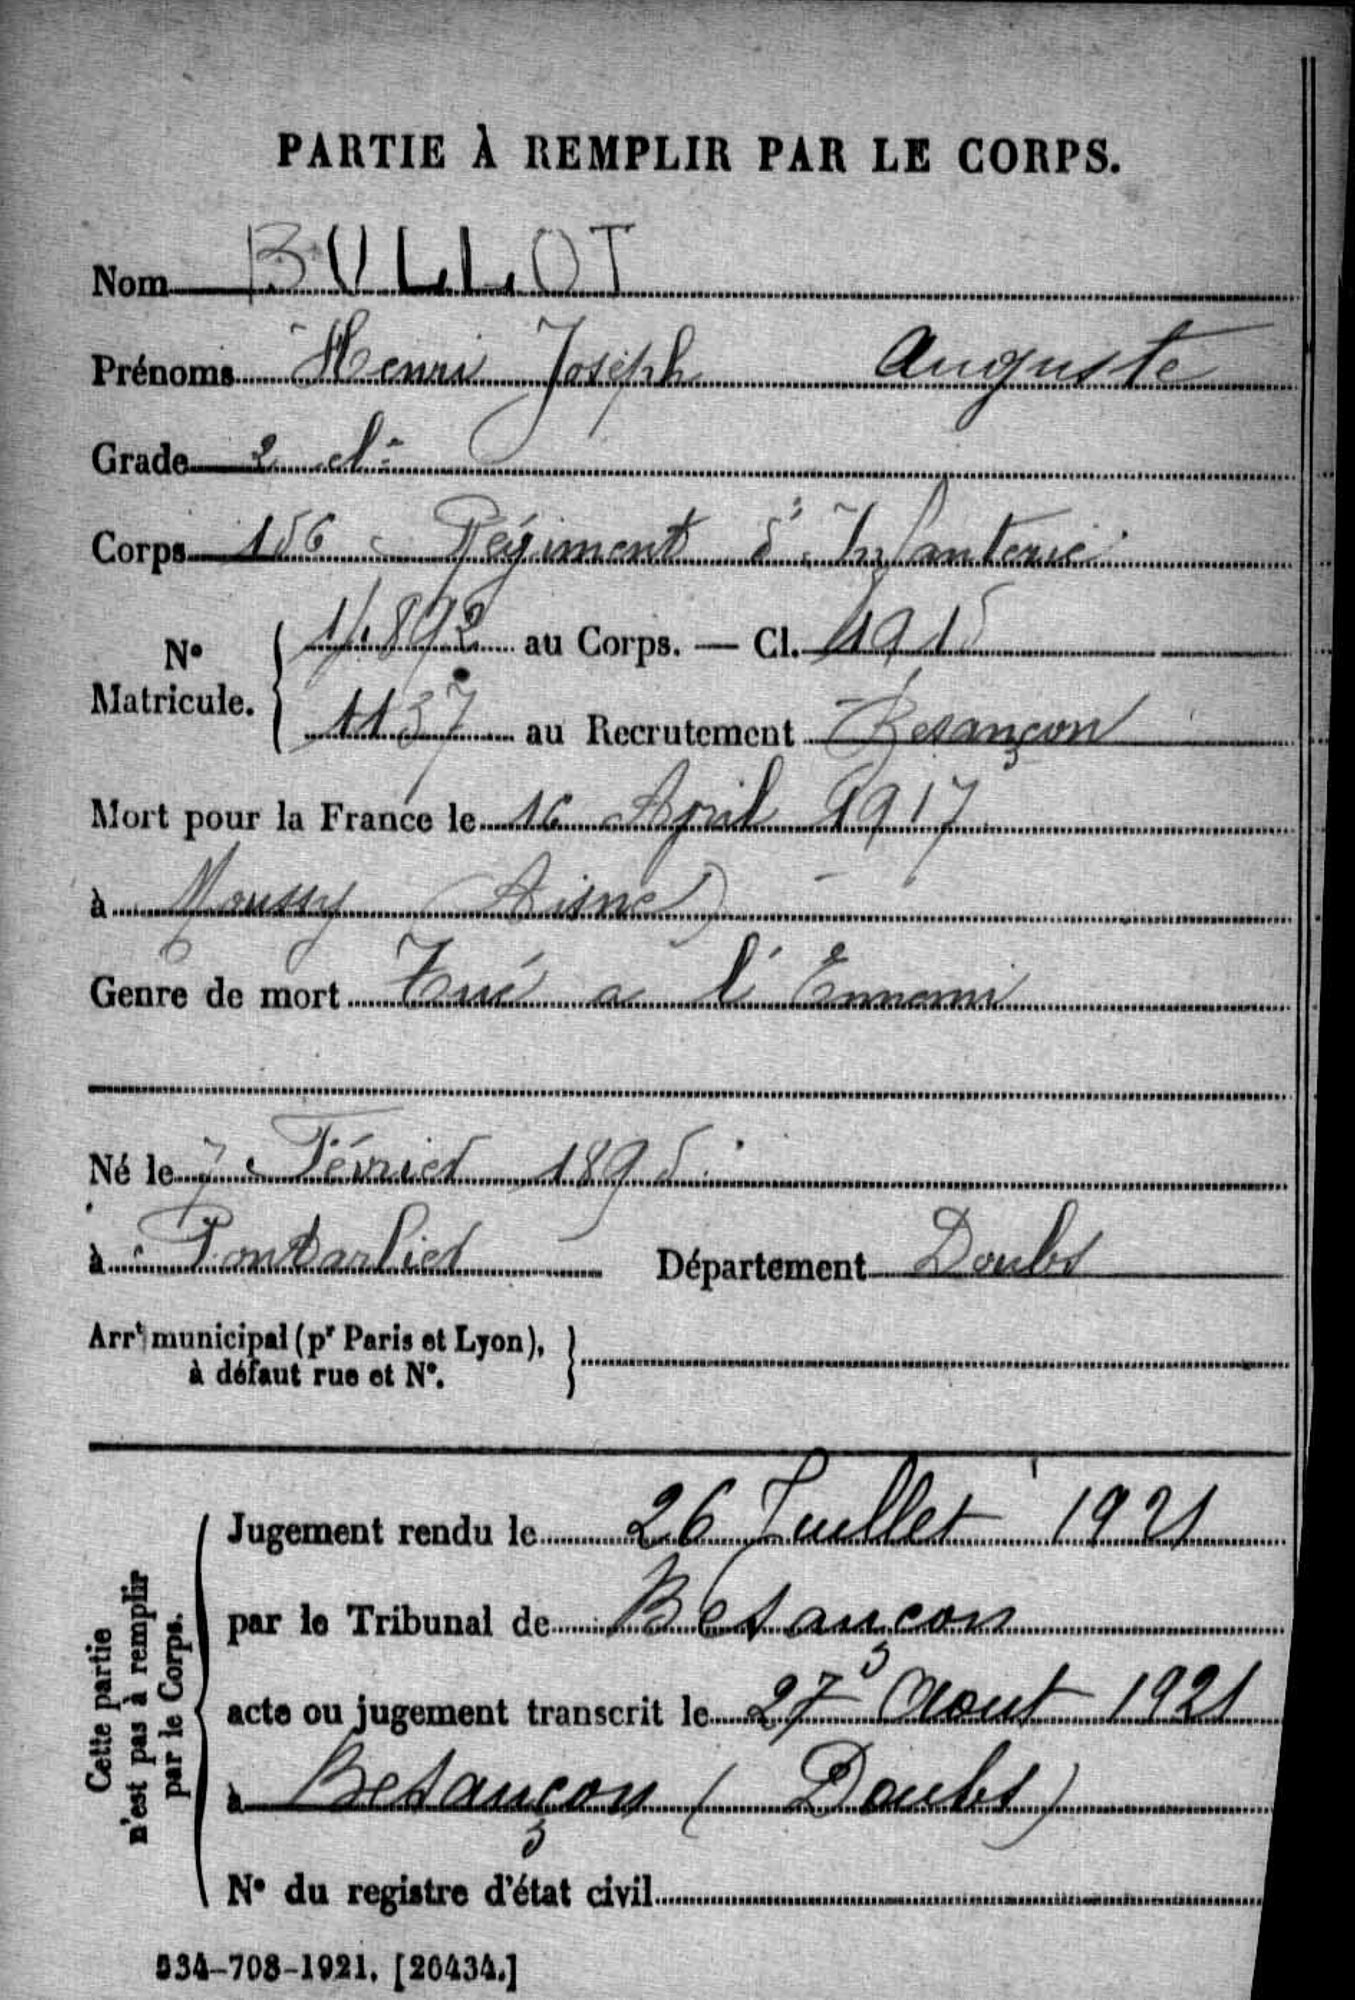 PARTIE À REMPLIR PAR LE CORPS.
Nom BULLOT
Prénoms Henri Joseph Auguste
Grade 2 cl
Corps 156e Régiment d'Infanterie
No Matricule. 11.892 au Corps. — Cl. 1915
1137 au Recrutement Besançon
Mort pour la France le 16 April 1917
à Moussy (Aisne)
Genre de mort Tué a l'Ennemi
Né le 7 Février 1895
à Pontarlier Département Doubs
Arrt municipal (pr Paris et Lyon), à défaut rue et No.
Cette partie n'est pas à remplir par le Corps.
Jugement rendu le 26 Juillet 1921
par le Tribunal de Besançon
acte ou jugement transcrit le 27 Aout 1921
à Besançon (Doubs)
No du registre d'état civil
534-708-1921. [26434.]